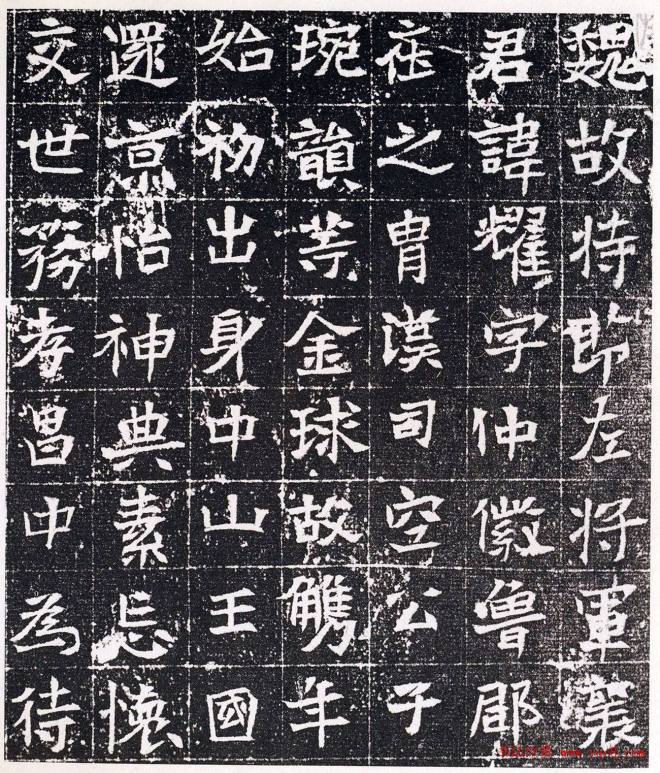 魏故持節左将軍襄
君諱耀字仲徽魯郡
在之胄漢司空公子
琬韻等金球故年
始初出身中山王國
還京怡神典素忘懷
交世務孝昌中為待